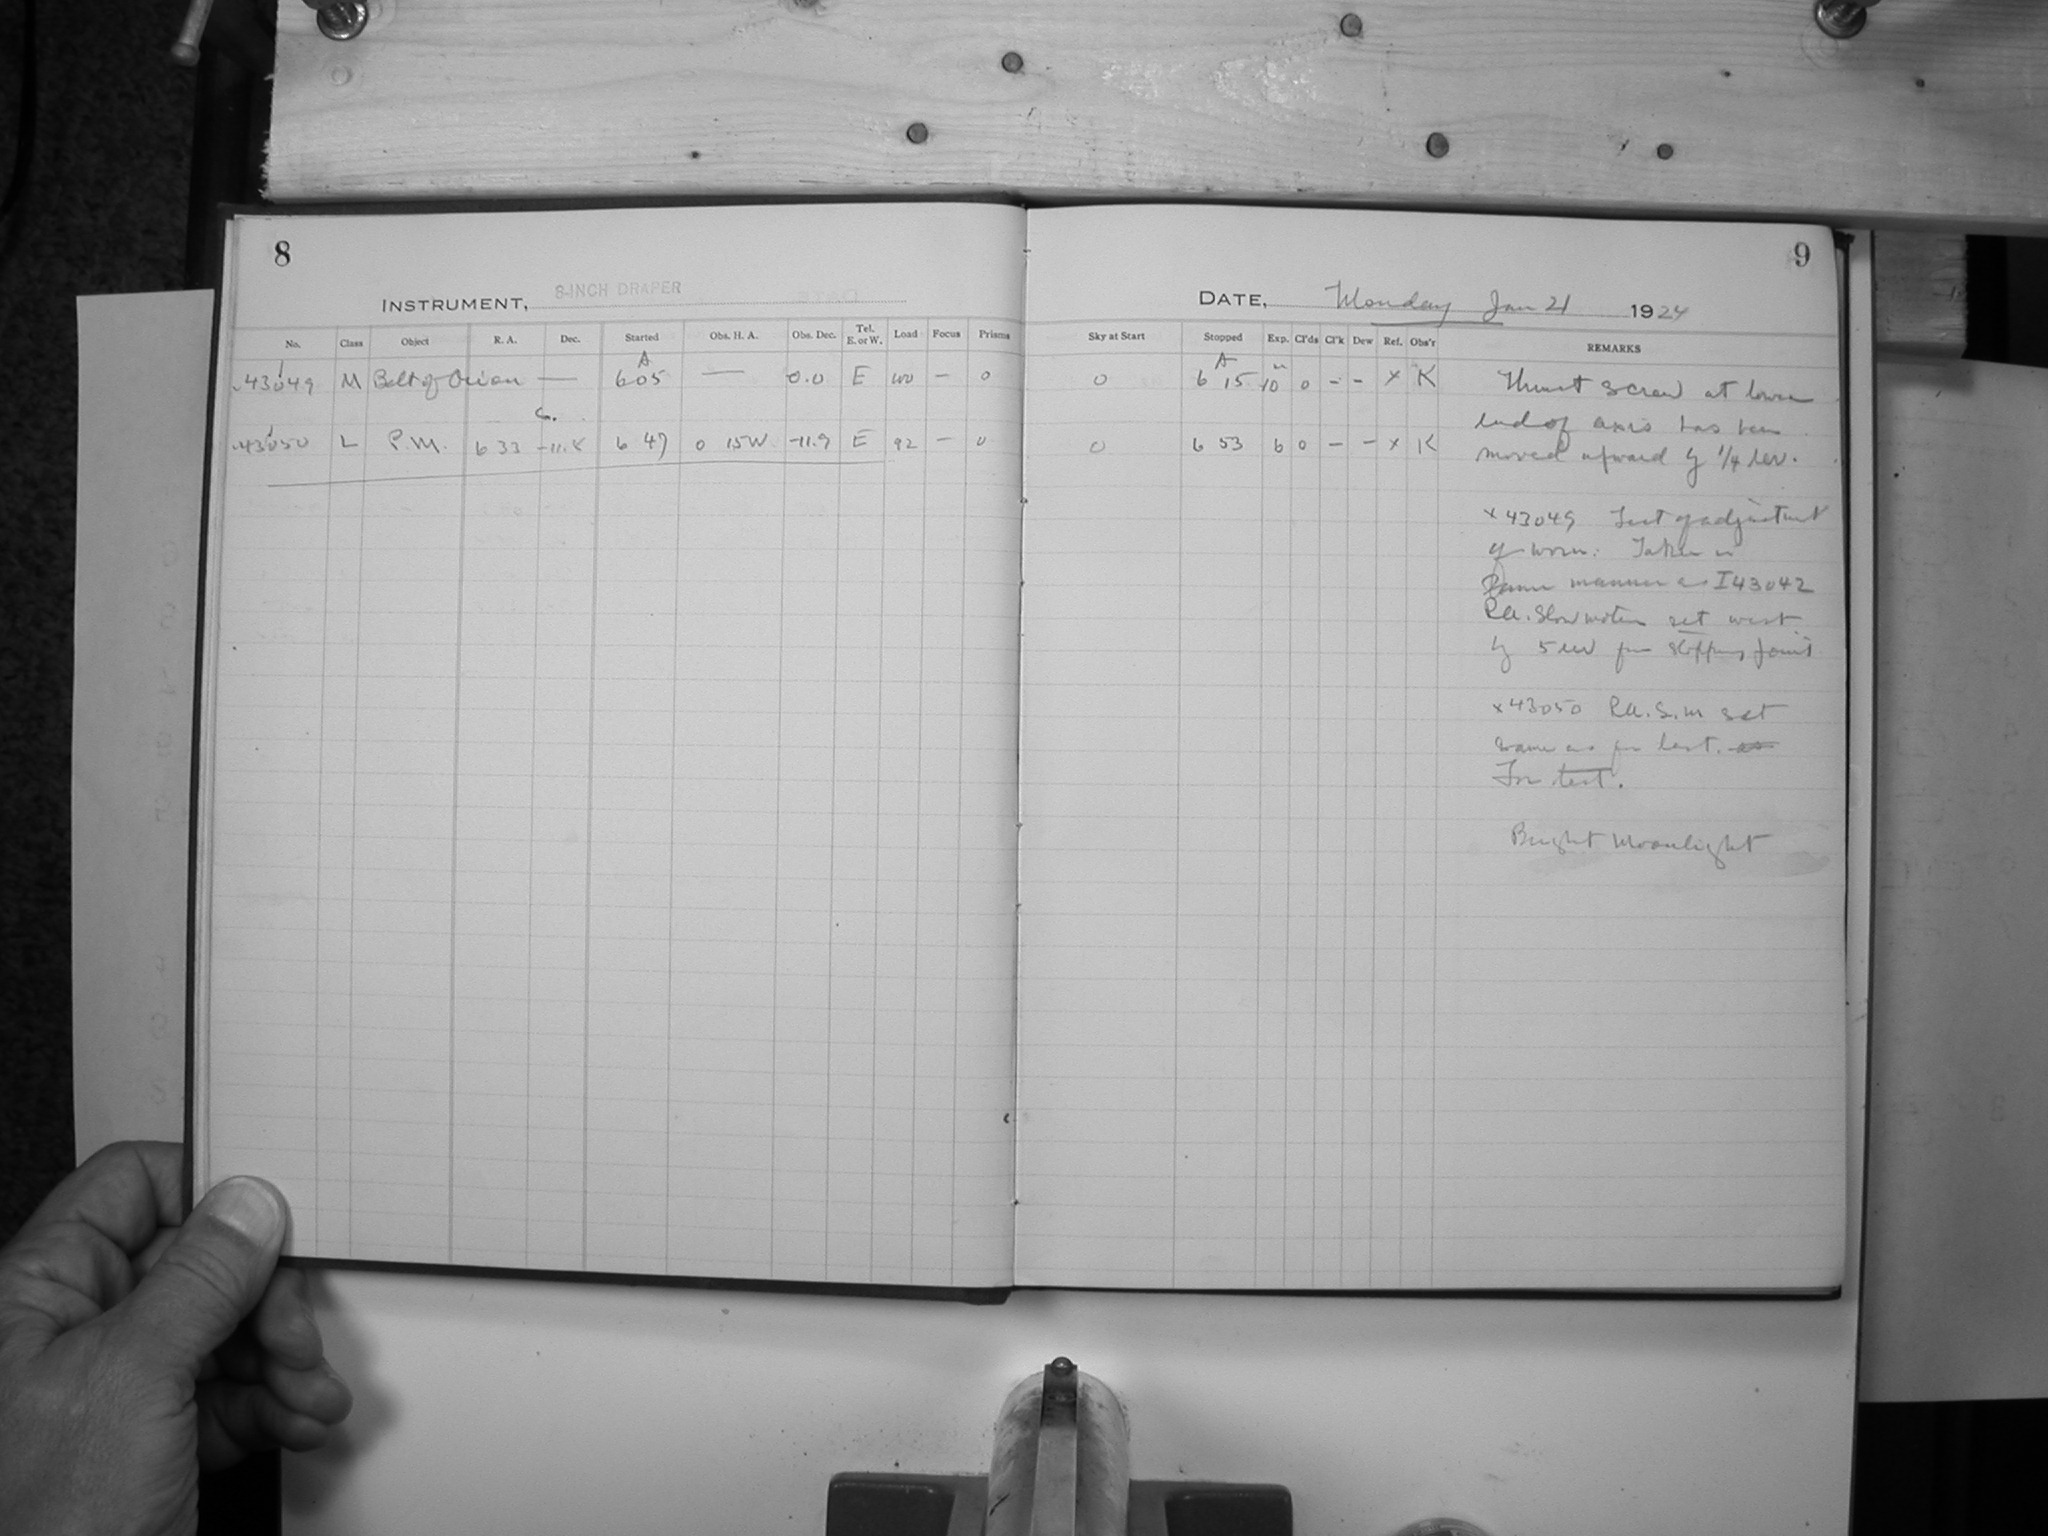 8
INSTRUMENT, 8-INCH DRAPER
No. Class Object R. A. Dec. Started Obs. H. A. Obs. Dec. Tel. E. or W. Load Focus Prisms
A
43049 M Belt of Orion — 6 05 — 0.0 E — 0
43050 L P.M. 6 33 -11.8 6 47 0 15W -11.9 E 92 — 0
9
DATE, Monday Jan 21 1924
Sky at Start Stopped Exp. Cl'ds Cl'k Dew Ref. Obs'r REMARKS
A m
0 6 15 10 0 - - x K
0 6 53 6 0 - - x K
Thrust screw at lower
end of axis has been
moved upward by 1/4 rev.
x 43049 Test of adjustment
of worm. Taken in
same manner as I43042
R.A. Slow motion set west
by 5 rev from stopping point
x 43050 R.A. S.M set
same as for last.
For test.
Bright Moonlight